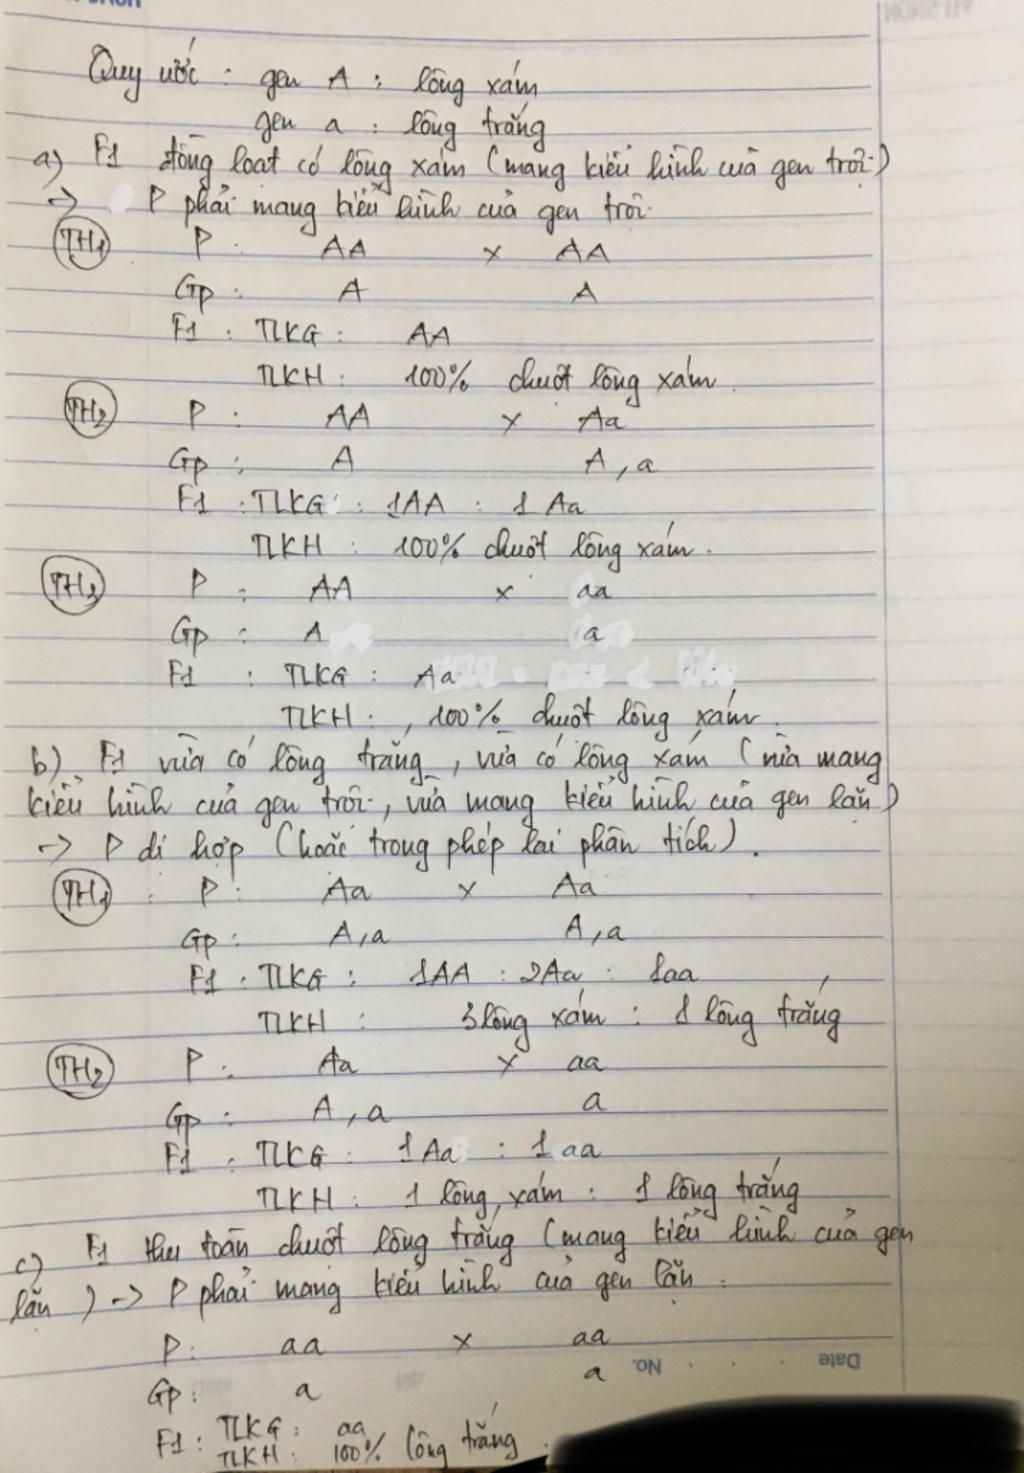 Quy ước : gen A : lông xám
gen a : lông trắng
a) F1 đồng loạt có lông xám (mang kiểu hình của gen trội)
-> P phải mang kiểu hình của gen trội.
TH1 P : AA x AA
Gp : A A
F1 : TLKG : AA
TLKH : 100% chuột lông xám.
TH2 P : AA x Aa
Gp : A A, a
F1 : TLKG : 1AA : 1 Aa
TLKH : 100% chuột lông xám.
TH3 P : AA x aa
Gp : A a
F1 : TLKG : Aa
TLKH : , 100% chuột lông xám.
b) F1 vừa có lông trắng, vừa có lông xám (vừa mang
kiểu hình của gen trội, vừa mang kiểu hình của gen lặn)
-> P dị hợp (hoặc trong phép lai phân tích).
TH1 : P : Aa x Aa
Gp : A, a A, a
F1 : TLKG : 1AA : 2Aa : 1aa
TLKH : 3 lông xám : 1 lông trắng
TH2 P : Aa x aa
Gp : A, a a
F1 : TLKG : 1 Aa : 1 aa
TLKH : 1 lông xám : 1 lông trắng
c) F1 thu toàn chuột lông trắng (mang kiểu hình của gen
lặn) -> P phải mang kiểu hình của gen lặn.
P : aa x aa
Date No.
Gp : a a
F1 : TLKG : aa
TLKH : 100% lông trắng.